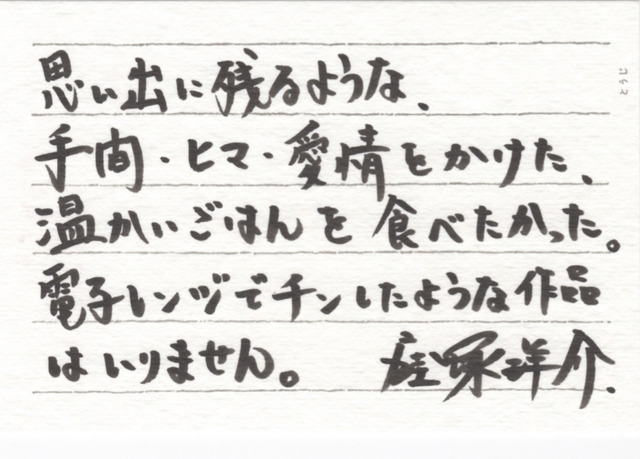 思い出に残るような、
手間・ヒマ・愛情をかけた、
温かいごはんを食べたかった。
電子レンヅでチンしたような作品
はいりません。 庭塚洋介.
とうじ